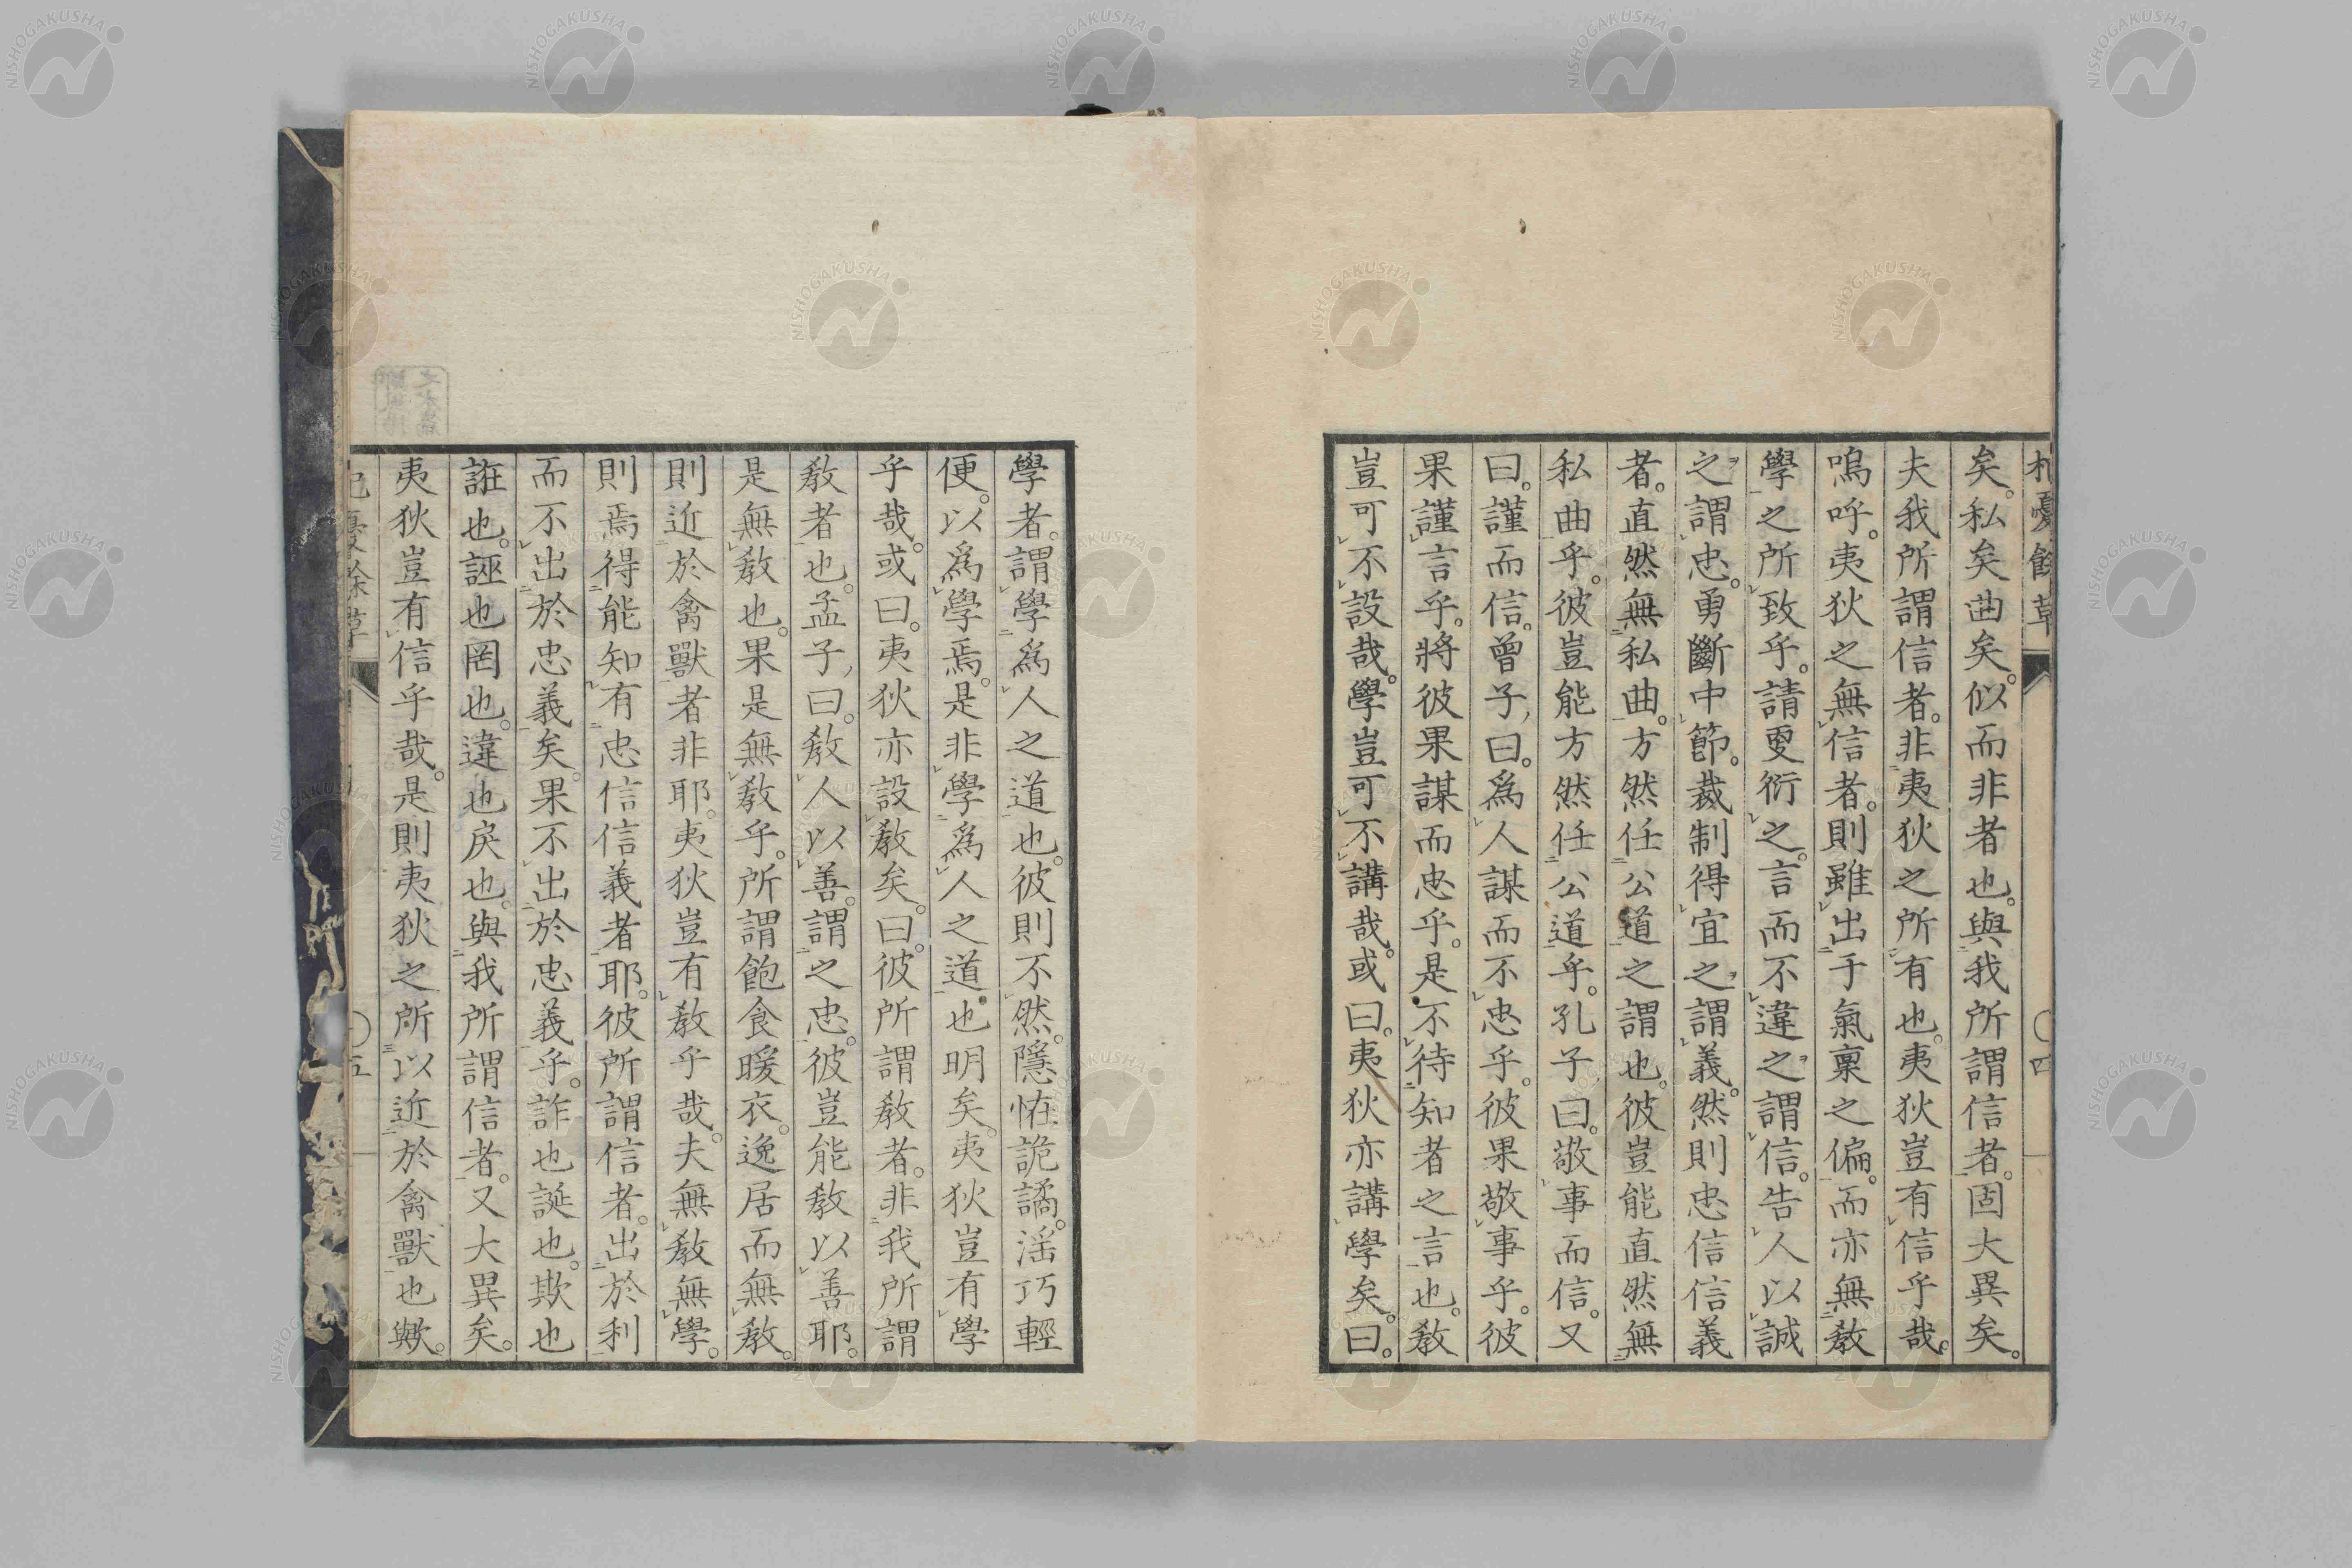 憂餘草
四
矣。私矣曲矣。似而非者也。與我所謂信者。固大異矣。
夫我所謂信者。非夷狄之所有也。夷狄豈有信乎哉。
嗚呼。夷狄之無信者。則雖出于氣稟之偏。而亦無教
學之所致乎。請更衍之。言而不違之謂信。告人以誠
之謂忠。勇斷中節。裁制得宜之謂義。然則忠信信義
者。直然無私曲。方然任公道之謂也。彼豈能直然無
私曲乎。彼豈能方然任公道乎。孔子曰。敬事而信。又
曰。謹而信。曾子曰。爲人謀而不忠乎。彼果敬事乎。彼
果謹言乎。將彼果謀而忠乎。是不待知者之言也。教
豈可不設哉。學豈可不講哉。或曰。夷狄亦講學矣。曰。
學者。謂學爲人之道也。彼則不然。隱恠詭譎。淫巧輕
便。以爲學焉。是非學爲人之道也明矣。夷狄豈有學
乎哉。或曰。夷狄亦設教矣。曰。彼所謂教者。非我所謂
教者也。孟子曰。教人以善。謂之忠。彼豈能教以善耶。
是無教也。果是無教乎。所謂飽食暖衣。逸居而無教。
則近於禽獸者非耶。夷狄豈有教乎哉。夫無教無學。
則焉得能知有忠信信義者耶。彼所謂信者。出於利
而不出於忠義矣。果不出於忠義乎。詐也誕也。欺也
誑也。誣也罔也。違也戾也。與我所謂信者。又大異矣。
夷狄豈有信乎哉。是則夷狄之所以近於禽獸也歟。
憂餘草
五
NISHOGAKUSHA